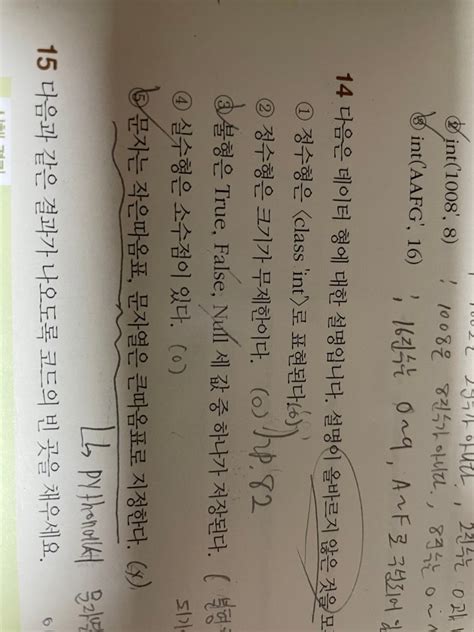 ④ int('1008', 8) ; 1008은 8진수가 아니다., 8진수는 0~
⑤ int('AAFG', 16) ; 16진수는 0~9, A~F로
14 다음은 데이터 형에 대한 설명입니다. 설명이 올바르지 않은 것을 모
① 정수형은 <class 'int'>로 표현된다.(o)
② 정수형은 크기가 무제한이다. (o) p.82
③ 불형은 True, False, Null 세 값 중 하나가 저장된다. (
④ 실수형은 소수점이 있다. (o)
⑤ 문자는 작은따옴표, 문자열은 큰따옴표로 지정한다. (x)
python에서
15 다음과 같은 결과가 나오도록 코드의 빈 곳을 채우세요.